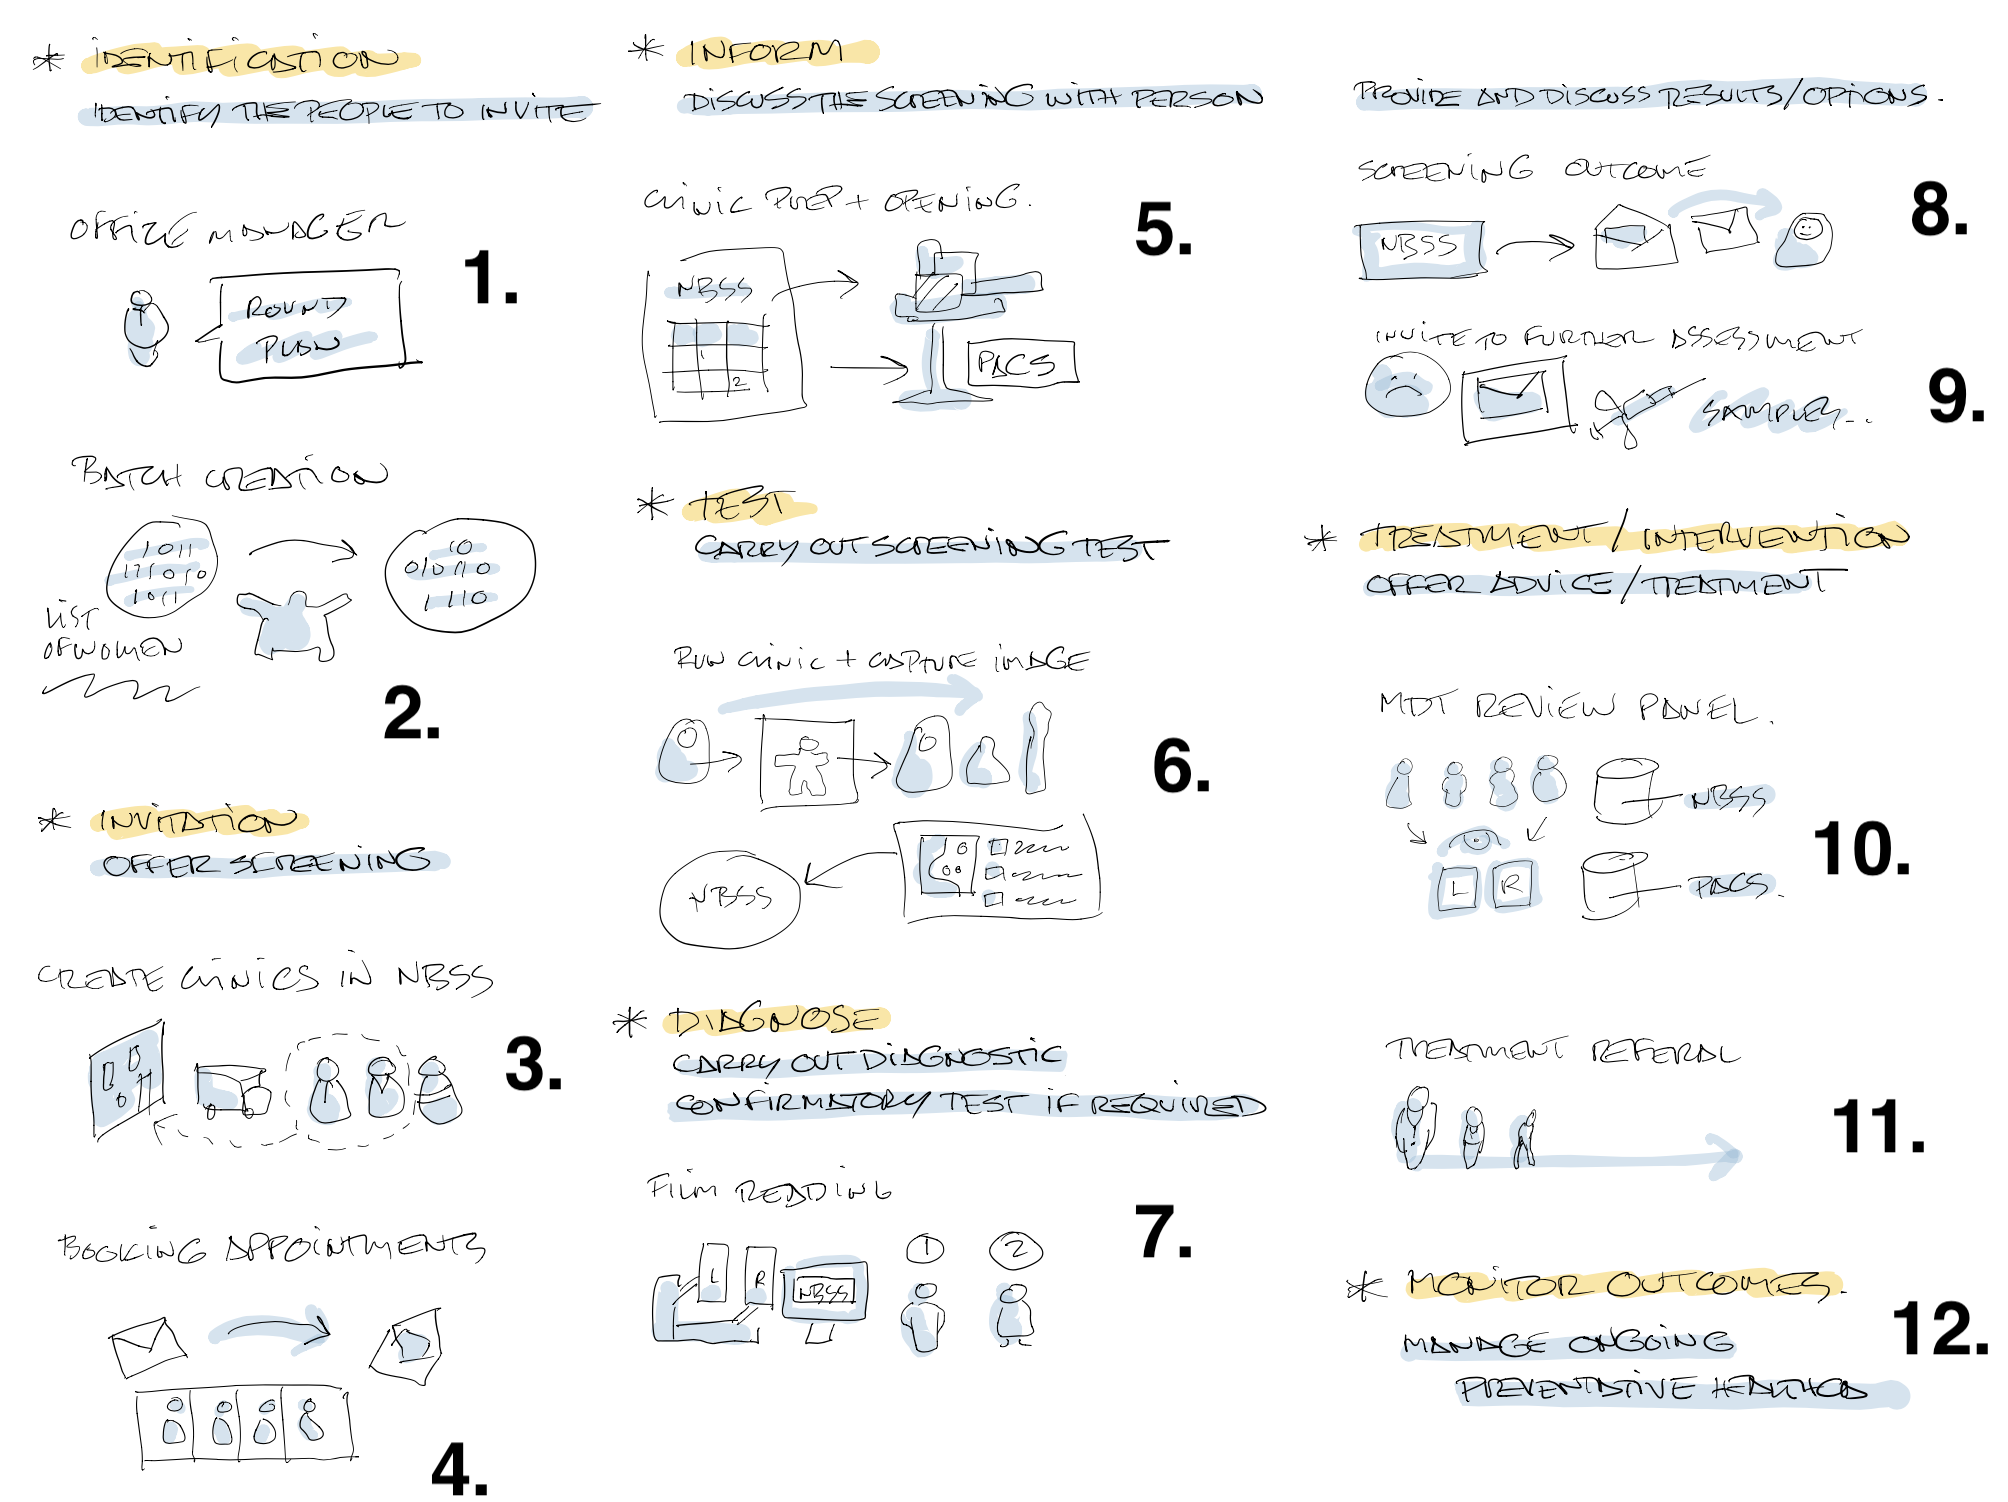 * IDENTIFICATION
IDENTIFY THE PEOPLE TO INVITE
OFFICE MANAGER
1.
ROUND
PLAN
BATCH CREATION
1011
10
0/0/10
1011
1110
LIST
OF WOMEN
2.
* INVITATION
OFFER SCREENING
CREATE CLINICS IN NBSS
3.
BOOKING APPOINTMENTS
4.
* INFORM
DISCUSS THE SCREENING WITH PERSON
CLINIC PREP + OPENING.
5.
NBSS
1
2
PACS
* TEST
CARRY OUT SCREENING TEST
RUN CLINIC + CAPTURE IMAGE
6.
NBSS
* DIAGNOSE
CARRY OUT DIAGNOSTIC
CONFIRMATORY TEST IF REQUIRED
FILM READING
7.
L R NBSS 1 2
PROVIDE AND DISCUSS RESULTS/OPTIONS.
SCREENING OUTCOME
8.
NBSS
INVITE TO FURTHER ASSESSMENT
9.
SAMPLES...
* TREATMENT / INTERVENTION
OFFER ADVICE / TREATMENT
MDT REVIEW PANEL.
NBSS
10.
L R PACS.
TREATMENT REFERAL
11.
* MONITOR OUTCOMES.
12.
MANAGE ONGOING
PREVENTATIVE